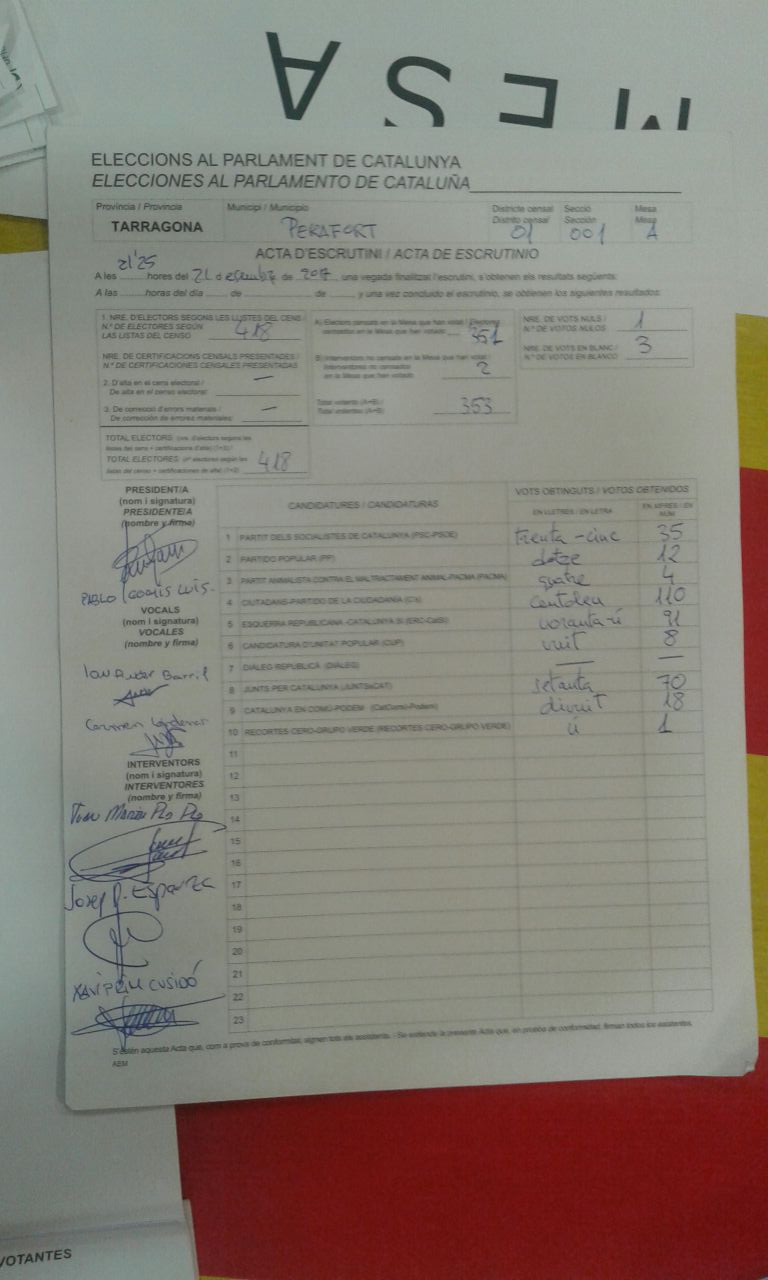 MESA
ELECCIONS AL PARLAMENT DE CATALUNYA
ELECCIONES AL PARLAMENTO DE CATALUÑA
Província / Provincia Municipi / Municipio Districte censal Secció Mesa
Distrito censal Sección Mesa
TARRAGONA PERAFORT 01 001 A
ACTA D'ESCRUTINI / ACTA DE ESCRUTINIO
21'25
A les hores del 21 d desembre de 2017, una vegada finalitzat l'escrutini, s'obtenen els resultats següents:
A las horas del día de de y una vez concluido el escrutinio, se obtienen los siguientes resultados:
1. NRE. D'ELECTORS SEGONS LES LLISTES DEL CENS /
N.º DE ELECTORES SEGÚN
LAS LISTAS DEL CENSO 418
NRE. DE CERTIFICACIONS CENSALS PRESENTADES /
N.º DE CERTIFICACIONES CENSALES PRESENTADAS
2. D'alta en el cens electoral /
De alta en el censo electoral: —
3. De correcció d'errors materials /
De corrección de errores materiales: —
TOTAL ELECTORS
TOTAL ELECTORES 418
A) Electors censats en la Mesa que han votat / Electores
censados en la Mesa que han votado 351
B) Interventors no censats en la Mesa que han votat /
Interventores no censados
en la Mesa que han votado 2
Total votants (A+B) /
Total votantes (A+B) 353
NRE. DE VOTS NULS /
N.º DE VOTOS NULOS 1
NRE. DE VOTS EN BLANC /
N.º DE VOTOS EN BLANCO 3
PRESIDENT/A
(nom i signatura)
PRESIDENTE/A
(nombre y firma)
PABLO GOMIS LUIS
VOCALS
(nom i signatura)
VOCALES
(nombre y firma)
Carmen Cardenas
INTERVENTORS
(nom i signatura)
INTERVENTORES
(nombre y firma)
Josep A. Esparza
XAVI PRIM CUSIDÓ
CANDIDATURES / CANDIDATURAS VOTS OBTINGUTS / VOTOS OBTENIDOS
EN LLETRES / EN LETRA EN XIFRES / EN NÚM
1 PARTIT DELS SOCIALISTES DE CATALUNYA (PSC-PSOE) trenta-cinc 35
2 PARTIDO POPULAR (PP) dotze 12
3 PARTIT ANIMALISTA CONTRA EL MALTRACTAMENT ANIMAL-PACMA (PACMA) quatre 4
4 CIUTADANS-PARTIDO DE LA CIUDADANÍA (C's) centdeu 110
5 ESQUERRA REPUBLICANA -CATALUNYA SÍ (ERC-CatSí) noranta-ú 91
6 CANDIDATURA D'UNITAT POPULAR (CUP) vuit 8
7 DIÀLEG REPÚBLICA (DIÀLEG) — —
8 JUNTS PER CATALUNYA (JUNTSxCAT) setanta 70
9 CATALUNYA EN COMÚ-PODEM (CatComú-Podem) divuit 18
10 RECORTES CERO-GRUPO VERDE (RECORTES CERO-GRUPO VERDE) ú 1
11
12
13
14
15
16
17
18
19
20
21
22
23
S'estén aquesta Acta que, com a prova de conformitat, signen tots els assistents. - Se extiende la presente Acta que, en prueba de conformidad, firman todos los asistentes.
VOTANTES